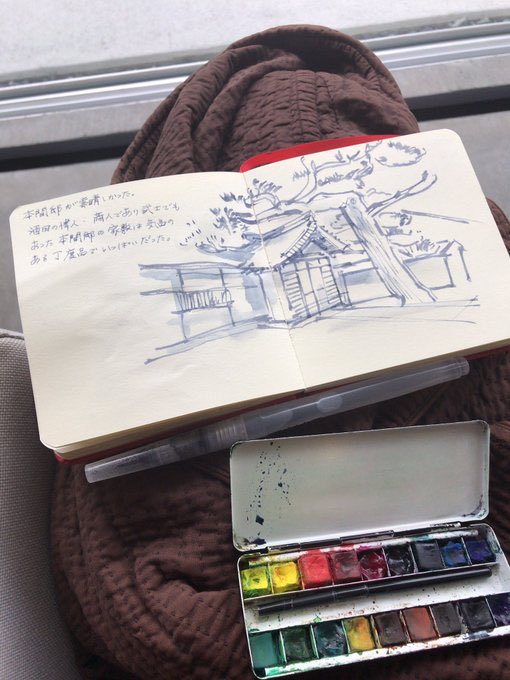 本間邸が素晴しかった。
酒田の偉人：商人であり武士でも
あった本間邸の家敷は気品の
ある丁度品でいっぱいだった。